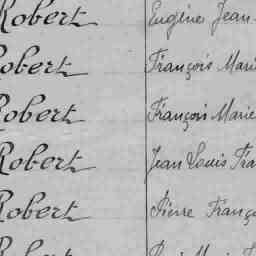 Robert Eugène Jean
Robert François Marie
Robert François Marie
Robert Jean Louis Fra
Robert Pierre Franço
Robert